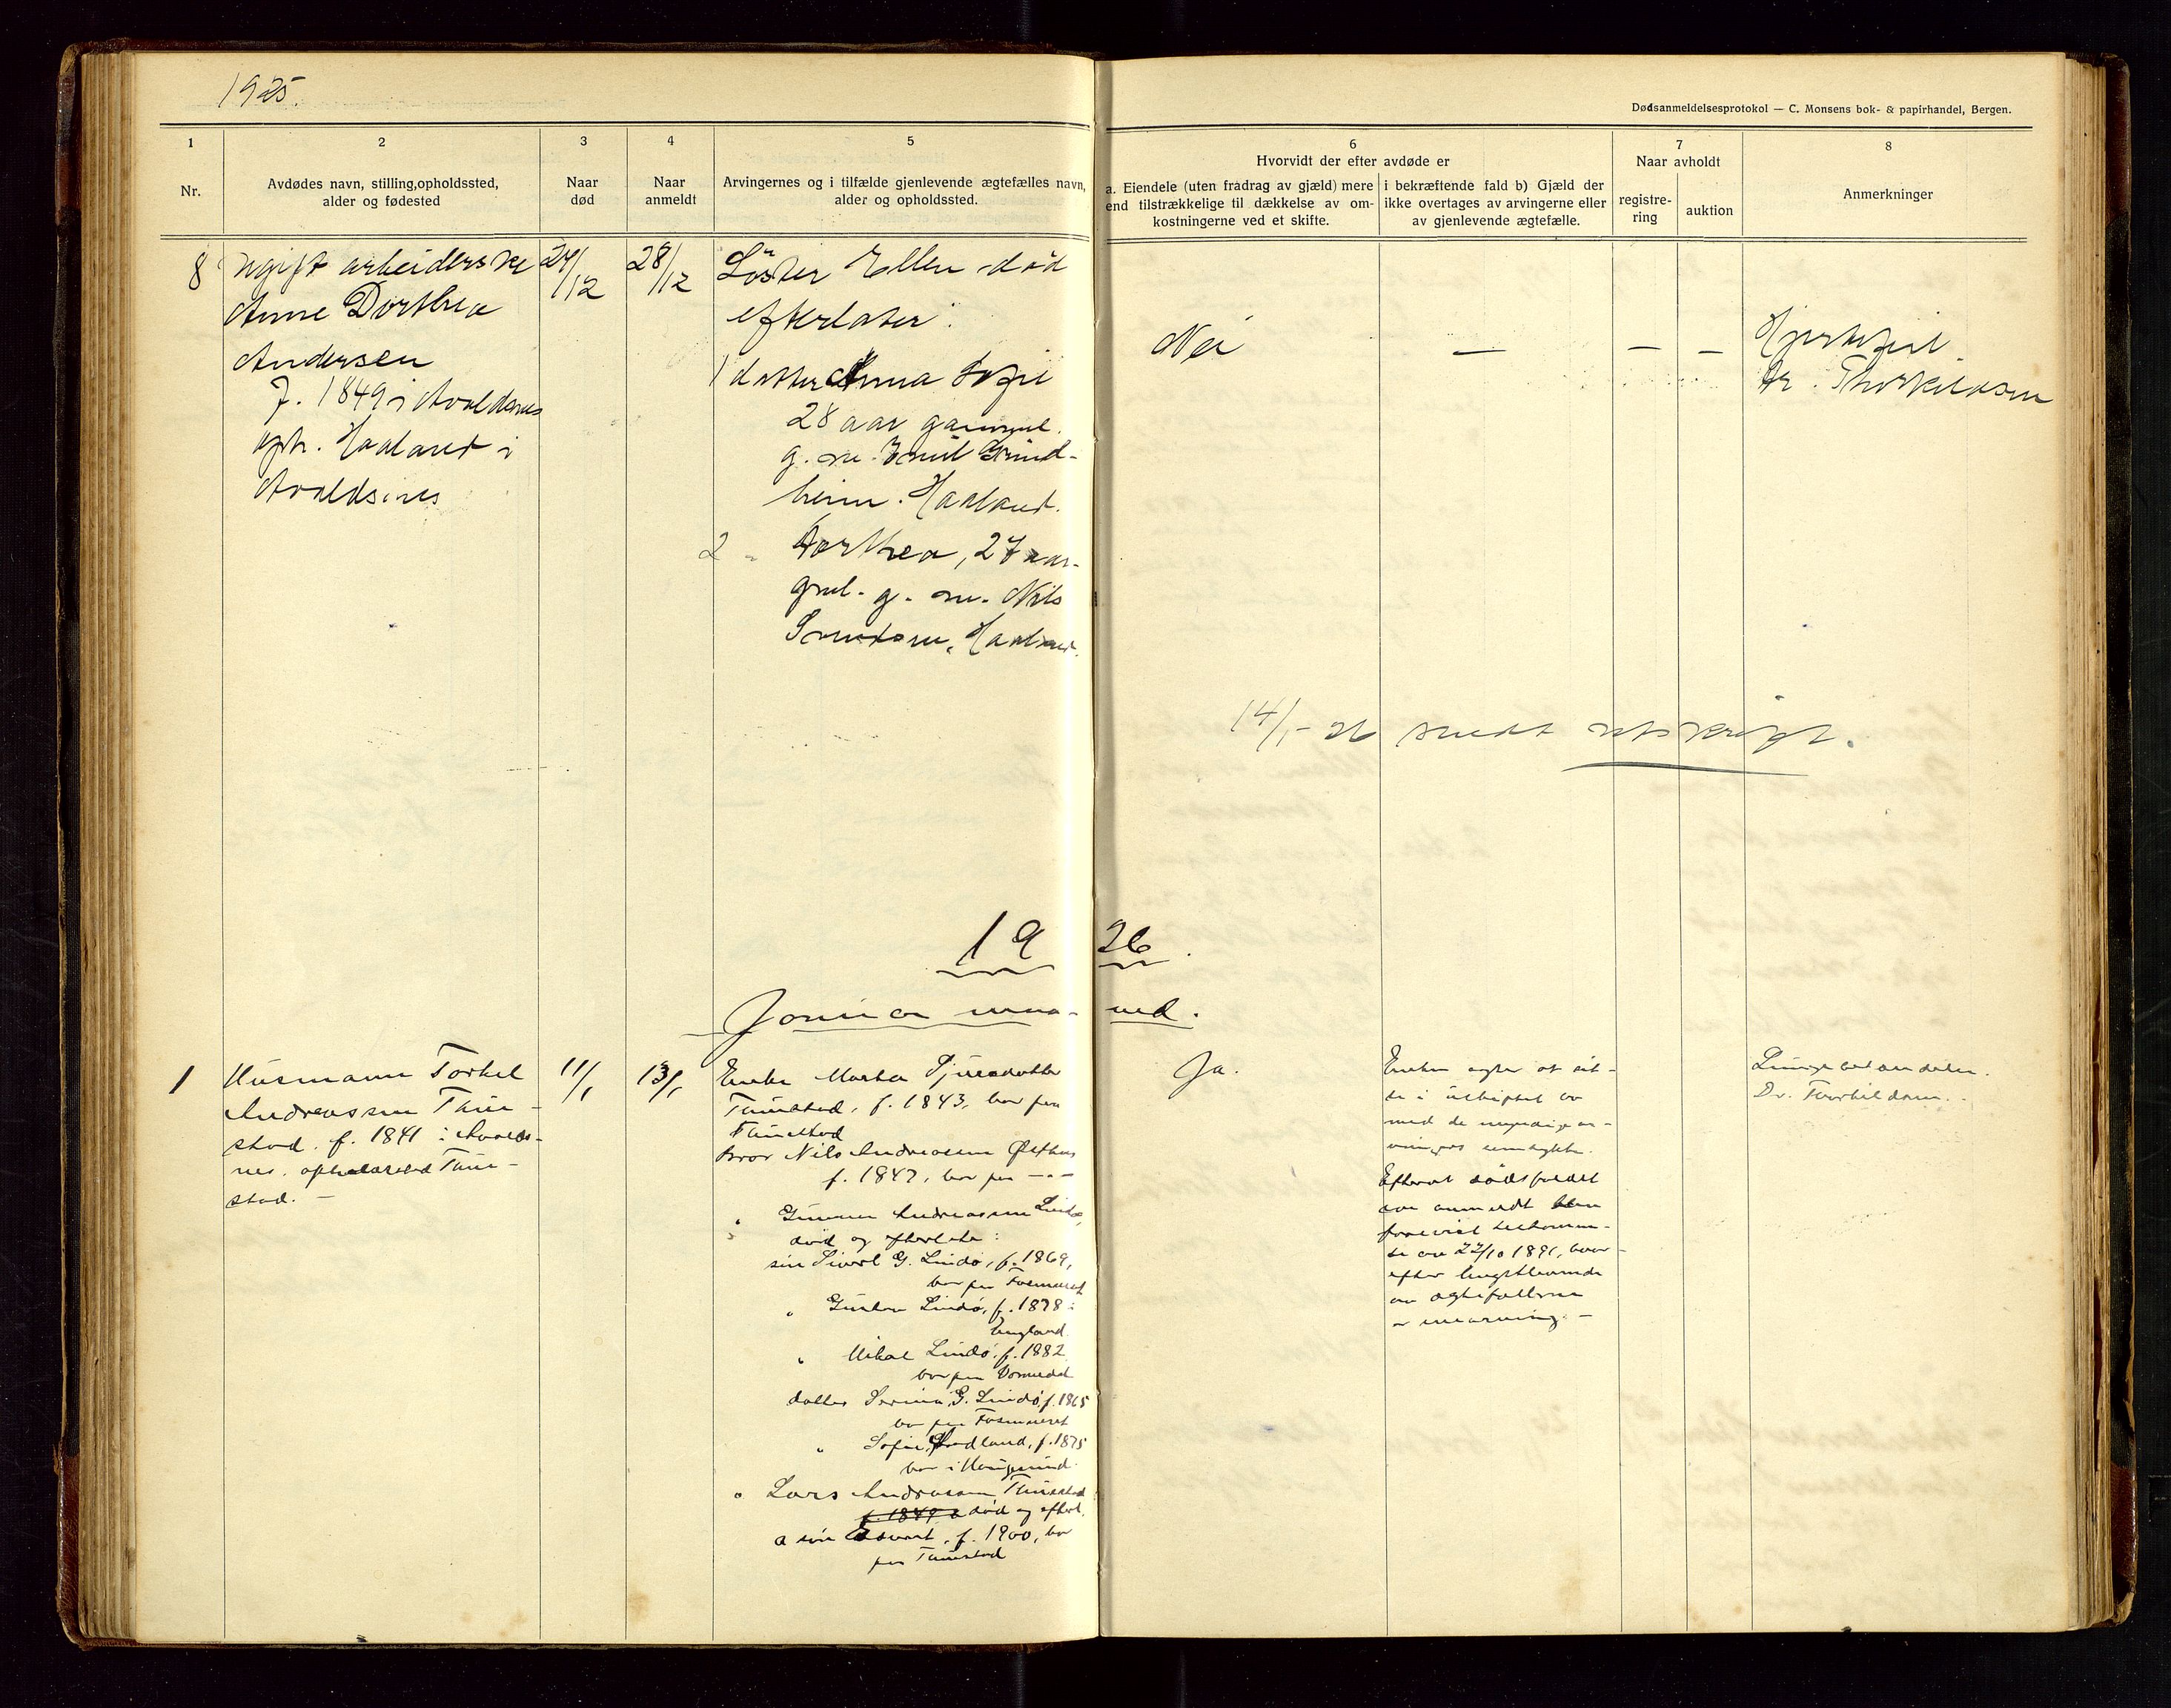 1925.
Dødsanmeldelsesprotokol — C. Monsens bok- & papirhandel, Bergen.
1
2
3
4
5
6
7
8
Nr.
Avdødes navn, stilling, opholdssted,
alder og fødested
Naar
død
Naar
anmeldt
Arvingernes og i tilfælde gjenlevende ægtefælles navn,
alder og opholdssted.
Hvorvidt der efter avdøde er
a. Eiendele (uten fradrag av gjæld) mere
end tilstrækkelige til dækkelse av om-
kostningerne ved et skifte.
i bekræftende fald b) Gjæld der
ikke overtages av arvingerne eller
av gjenlevende ægtefælle.
Naar avholdt
registre-
ring
auktion
Anmerkninger
8
Ugift arbeiderske
Anne Dorthea
Andersen
f. 1849 i Avaldsnes
oph. Haaland i
Avaldsnes
24/12
28/12
Søster Ellen død
efterlater.
1 datter Anna Sofie
28 aar gammel.
g. m. Emil Grind-
heim. Haaland.
2 " Dorthea, 27 aar
gml. g. m. Nils
Haaland.
Nei
—
—
—
Hjertefeil.
Dr. Thorkildsen
14/1-26 sendt utskrift.
1926.
Januar maaned.
1
Husmann Torkel
Andreassen Tune-
stad. f. 1841 i Avalds-
nes. opholdssted Tune-
stad. —
11/1
13/1
Enke Marta
f. 1843, bor paa
Bror Nils Andreassen Østhus
f. 1847, bor paa —"—
" Gunnar Andreassen Lindø,
død og efterlate:
søn Sivert G. Lindø, f. 1869,
bor paa Fosneneset
" Gustav Lindø, f. 1878 i
England.
" Mikal Lindø, f. 1882
bor paa
datter Serina G. Lindø, f. 1865
bor paa Fosneneset
" Sofie f. 1875
bor i Haugesund.
" Lars Andreassen Tunestad
f. 1849 død og efterl.
a søn Edvart, f. 1900, bor
paa Tunestad
Ja.
Enken agter at sit-
te i uskiftet bo
med de myndige ar-
vingers samtykke.
Efterat dødsfaldet
var anmeldt blev
forevist testamen-
te av 22/10 1891, hvor-
efter lengstlevende
av ægtefællerne
er enearving. —
Lungebetændelse.
Dr. Thorkildsen.